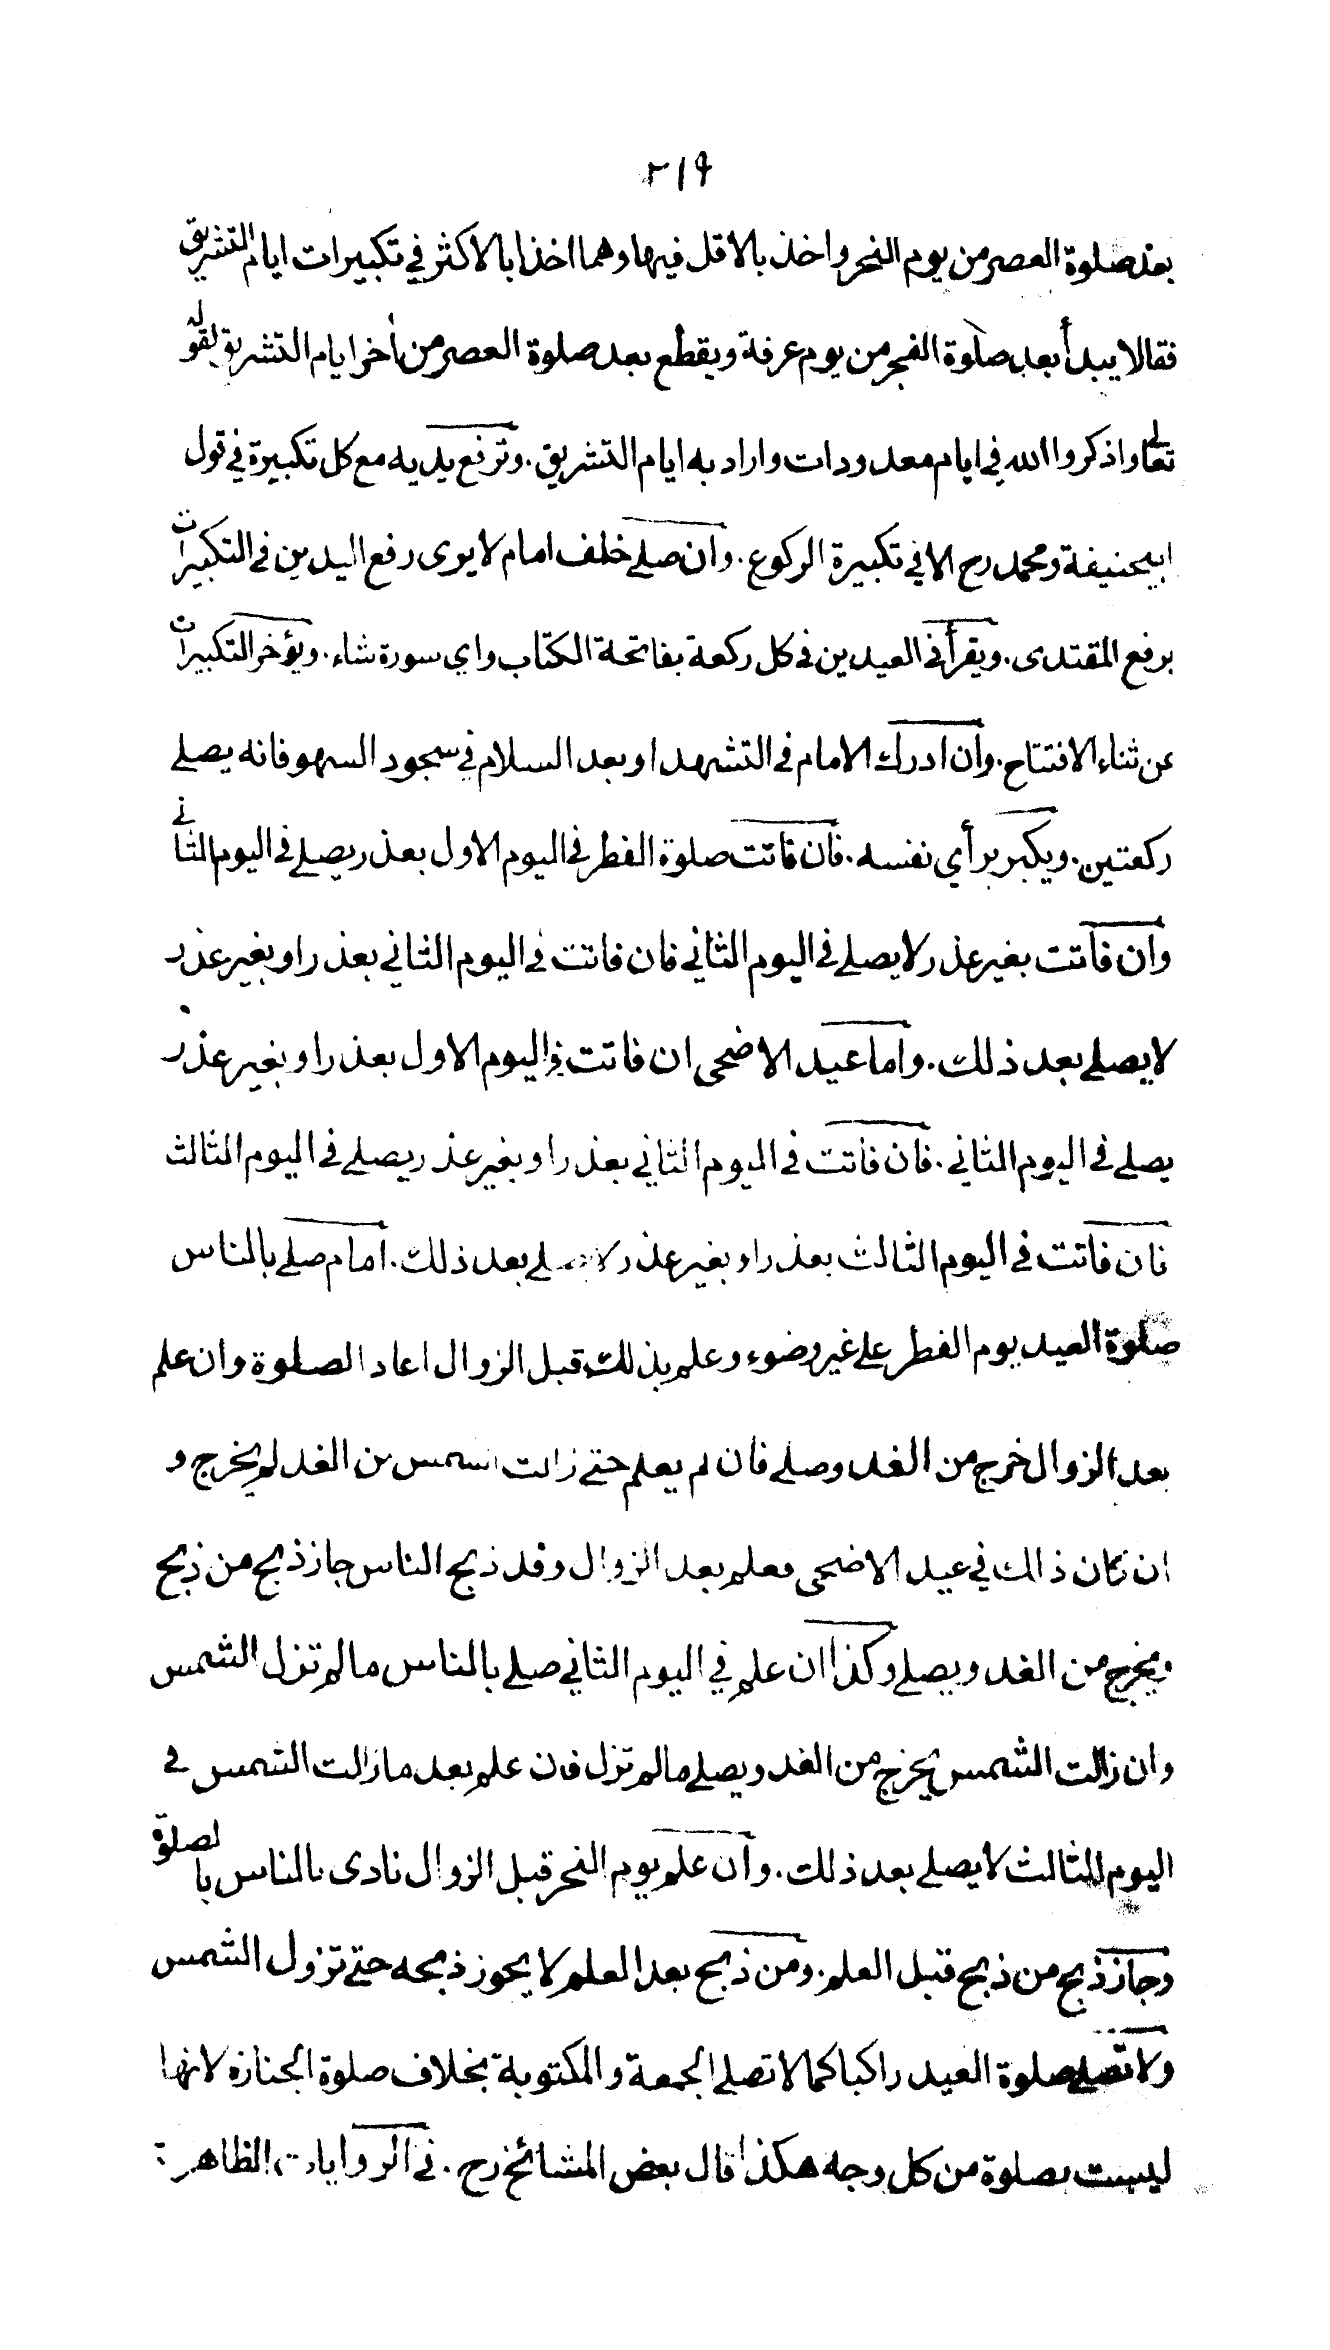 ٢١٩
بعد صلوة العصر من يوم النحر واخذ بالاقل فيها وهما اخذا بالاكثر في تكبيرات ايام التشريق
فقالا يبدأ بعد صلوة الفجر من يوم عرفة ويقطع بعد صلوة العصر من اخر ايام التشريق لقوله
تعالى واذكروا الله في ايام معدودات واراد به ايام التشريق. وترفع يديه مع كل تكبيرة في قول
ابيحنيفة ومحمد رح الا في تكبيرة الركوع. وان صلى خلف امام لا يرى رفع اليدين في التكبيرات
يرفع المقتدى. ويقرأ في العيدين في كل ركعة بفاتحة الكتاب واي سورة شاء. ويؤخر التكبيرات
عن ثناء الافتتاح. وان ادرك الامام في التشهد او بعد السلام في سجود السهو فانه يصلي
ركعتين. ويكبر برأي نفسه. فان فاتت صلوة الفطر في اليوم الاول بعذر يصلي في اليوم الثاني
وان فاتت بغير عذر لا يصلي في اليوم الثاني فان فاتت في اليوم الثاني بعذر او بغير عذر
لا يصلي بعد ذلك. واما عيد الاضحى ان فاتت في اليوم الاول بعذر او بغير عذر
يصلي في اليوم الثاني. فان فاتت في اليوم الثاني بعذر او بغير عذر يصلي في اليوم الثالث
فان فاتت في اليوم الثالث بعذر او بغير عذر لا يصلي بعد ذلك. امام صلى بالناس
صلوة العيد يوم الفطر على غير وضوء وعلم بذلك قبل الزوال اعاد الصلوة وان علم
بعد الزوال خرج من الغد وصلى فان لم يعلم حتى زالت الشمس من الغد لم يخرج و
ان كان ذلك في عيد الاضحى فعلم بعد الزوال وقد ذبح الناس جاز ذبح من ذبح
ويخرج من الغد ويصلي وكذا ان علم في اليوم الثاني صلى بالناس ما لم تزل الشمس
وان زالت الشمس يخرج من الغد ويصلي ما لم تزل فان علم بعد ما زالت الشمس في
اليوم الثالث لا يصلي بعد ذلك. وان علم يوم النحر قبل الزوال نادى بالناس بالصلوة
وجاز ذبح من ذبح قبل العلم. ومن ذبح بعد العلم لا يجوز ذبحه حتى تزول الشمس
ولا تصلى صلوة العيد راكبا كما لا تصلى الجمعة والمكتوبة بخلاف صلوة الجنازه لانها
ليست بصلوة من كل وجه هكذا قال بعض المشائخ رح. في الروايات الظاهرة